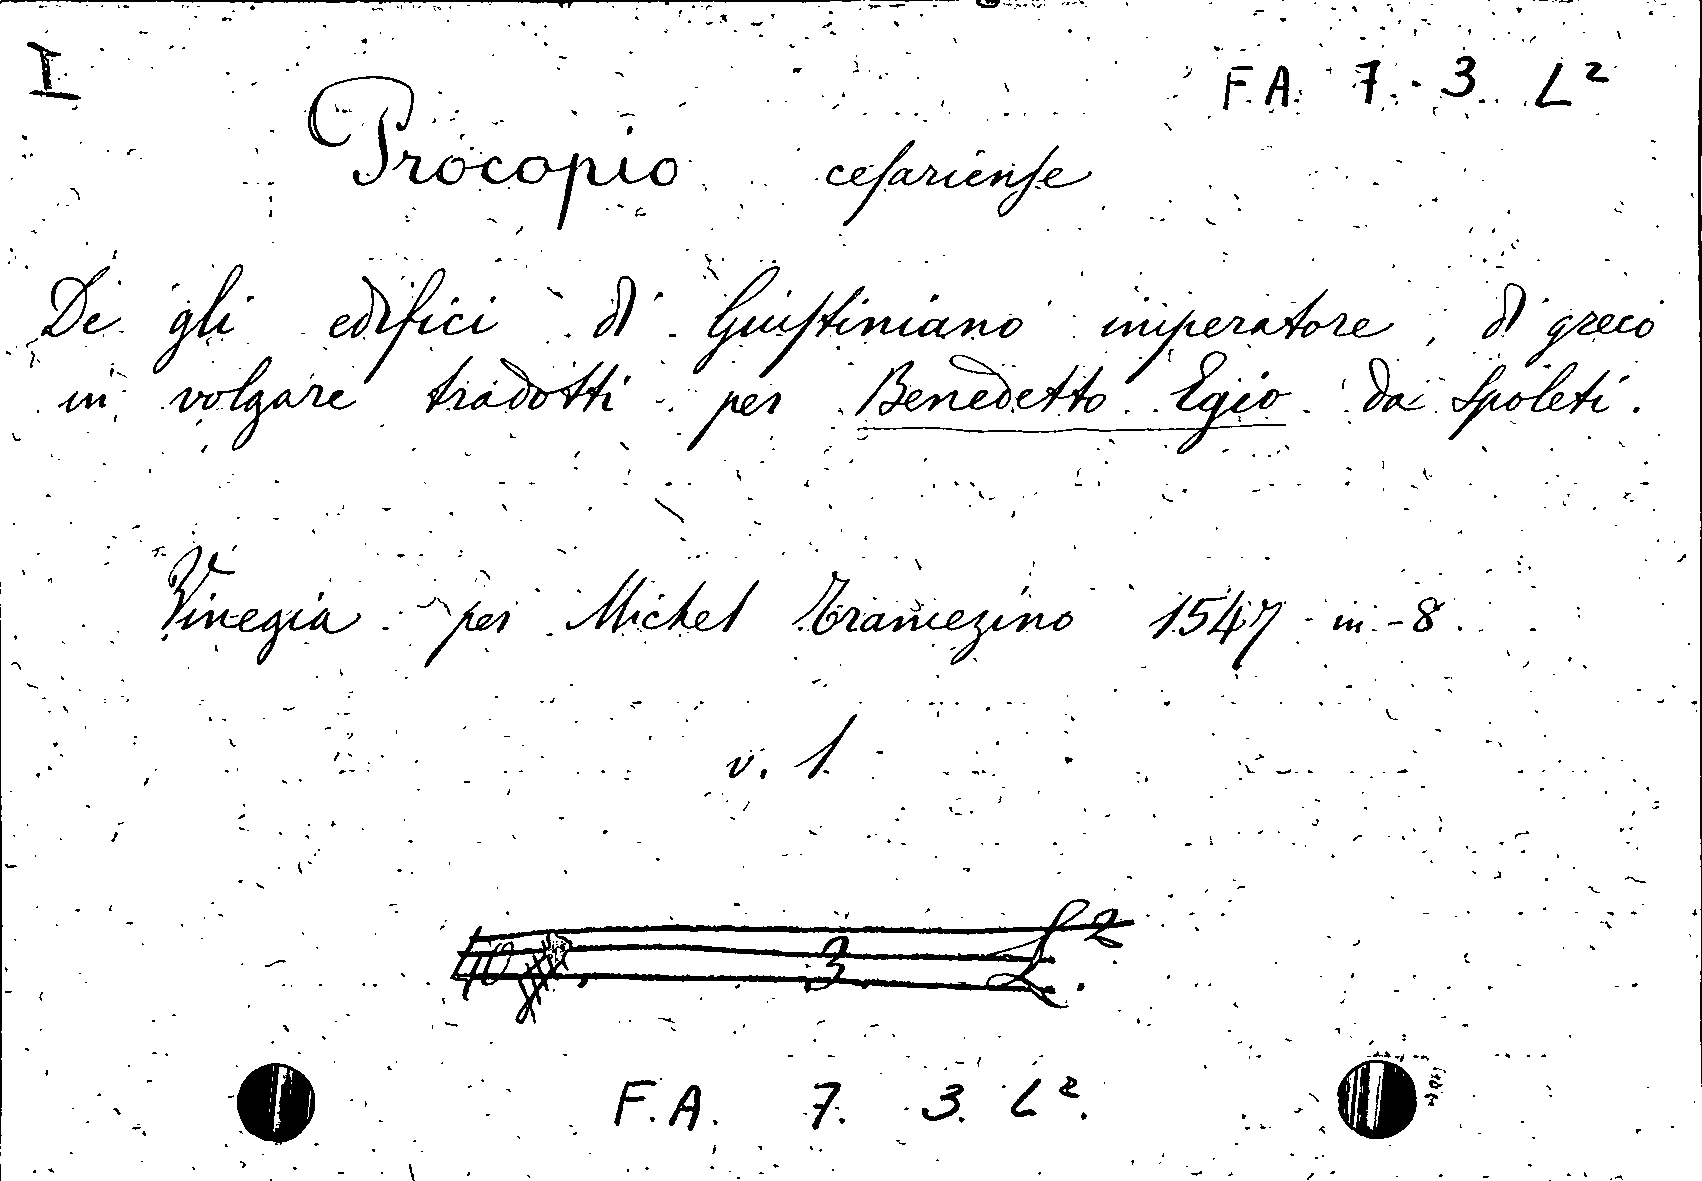 I
F.A. 7. 3. L²
Procopio cesariense
De gli edifici di Giustiniano imperatore, di greco
in volgare tradotti per Benedetto Egio da Spoleti.
Vinegia per Michel Tramezino 1547 in-8.
v. 1
3 L².
F.A. 7. 3. L².